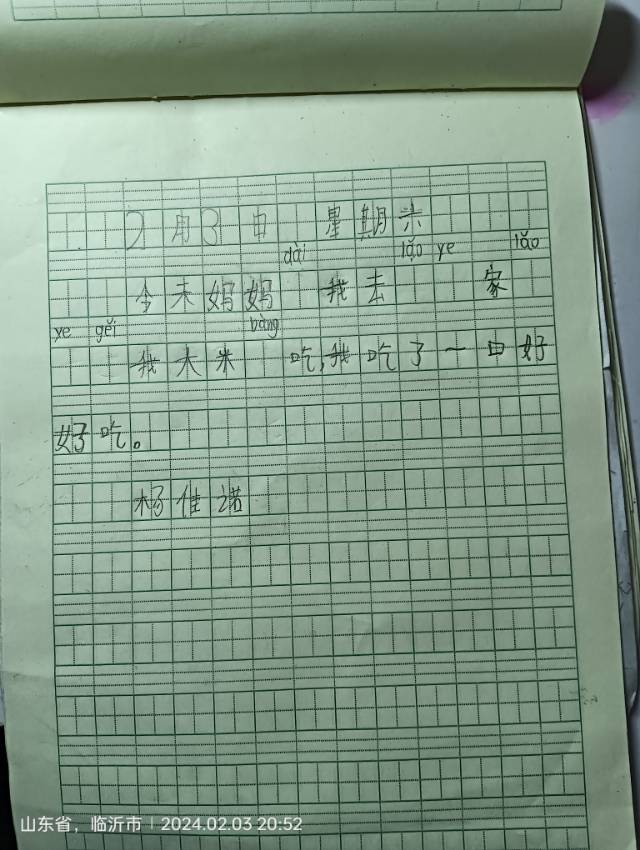 2月3日 星期六
dài lǎo ye lǎo
今天妈妈 我去 家
ye gěi bàng
我大米 吃,我吃了一口好
好吃。
杨佳诺
山东省，临沂市 | 2024.02.03 20:52